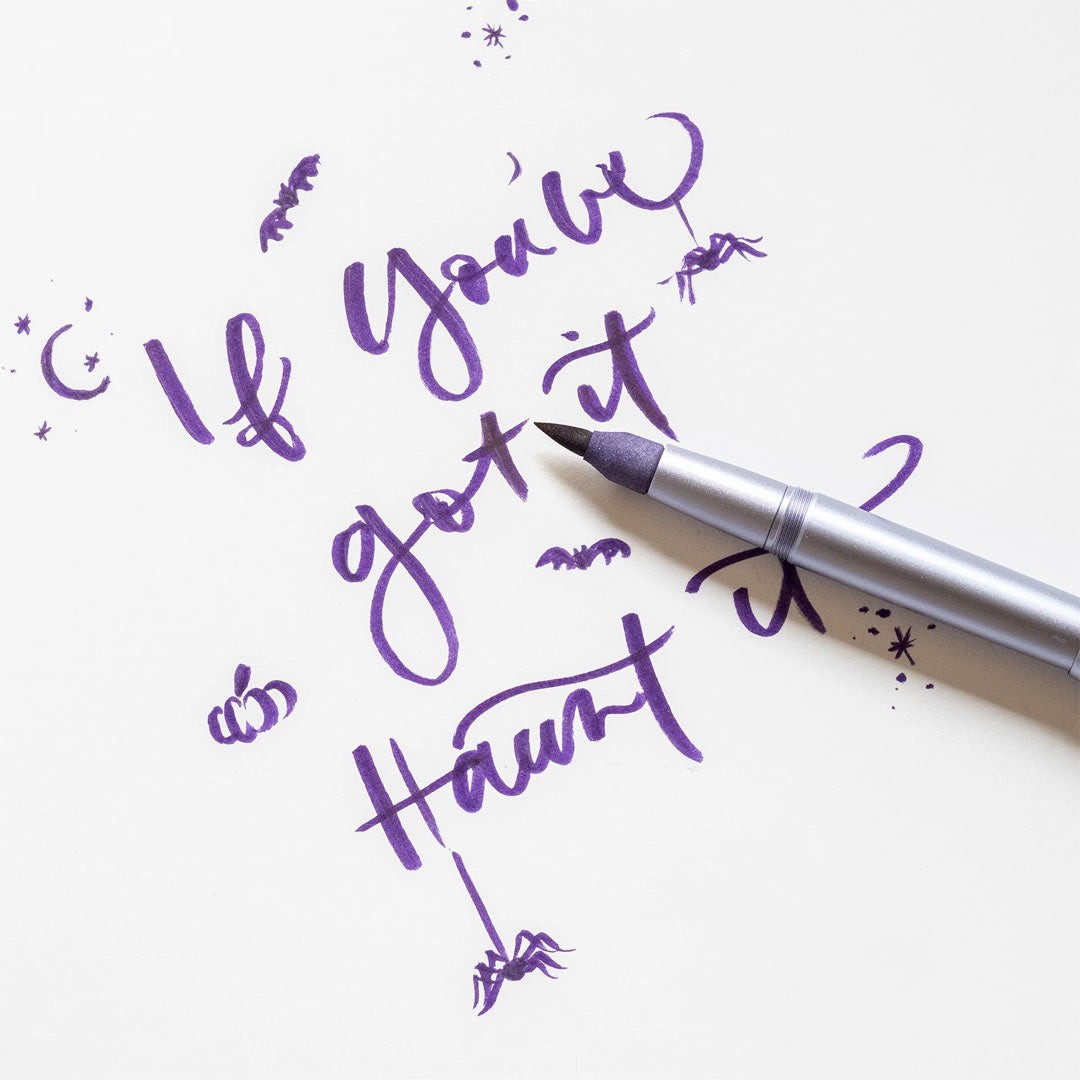 If You've
got it
Haunt it